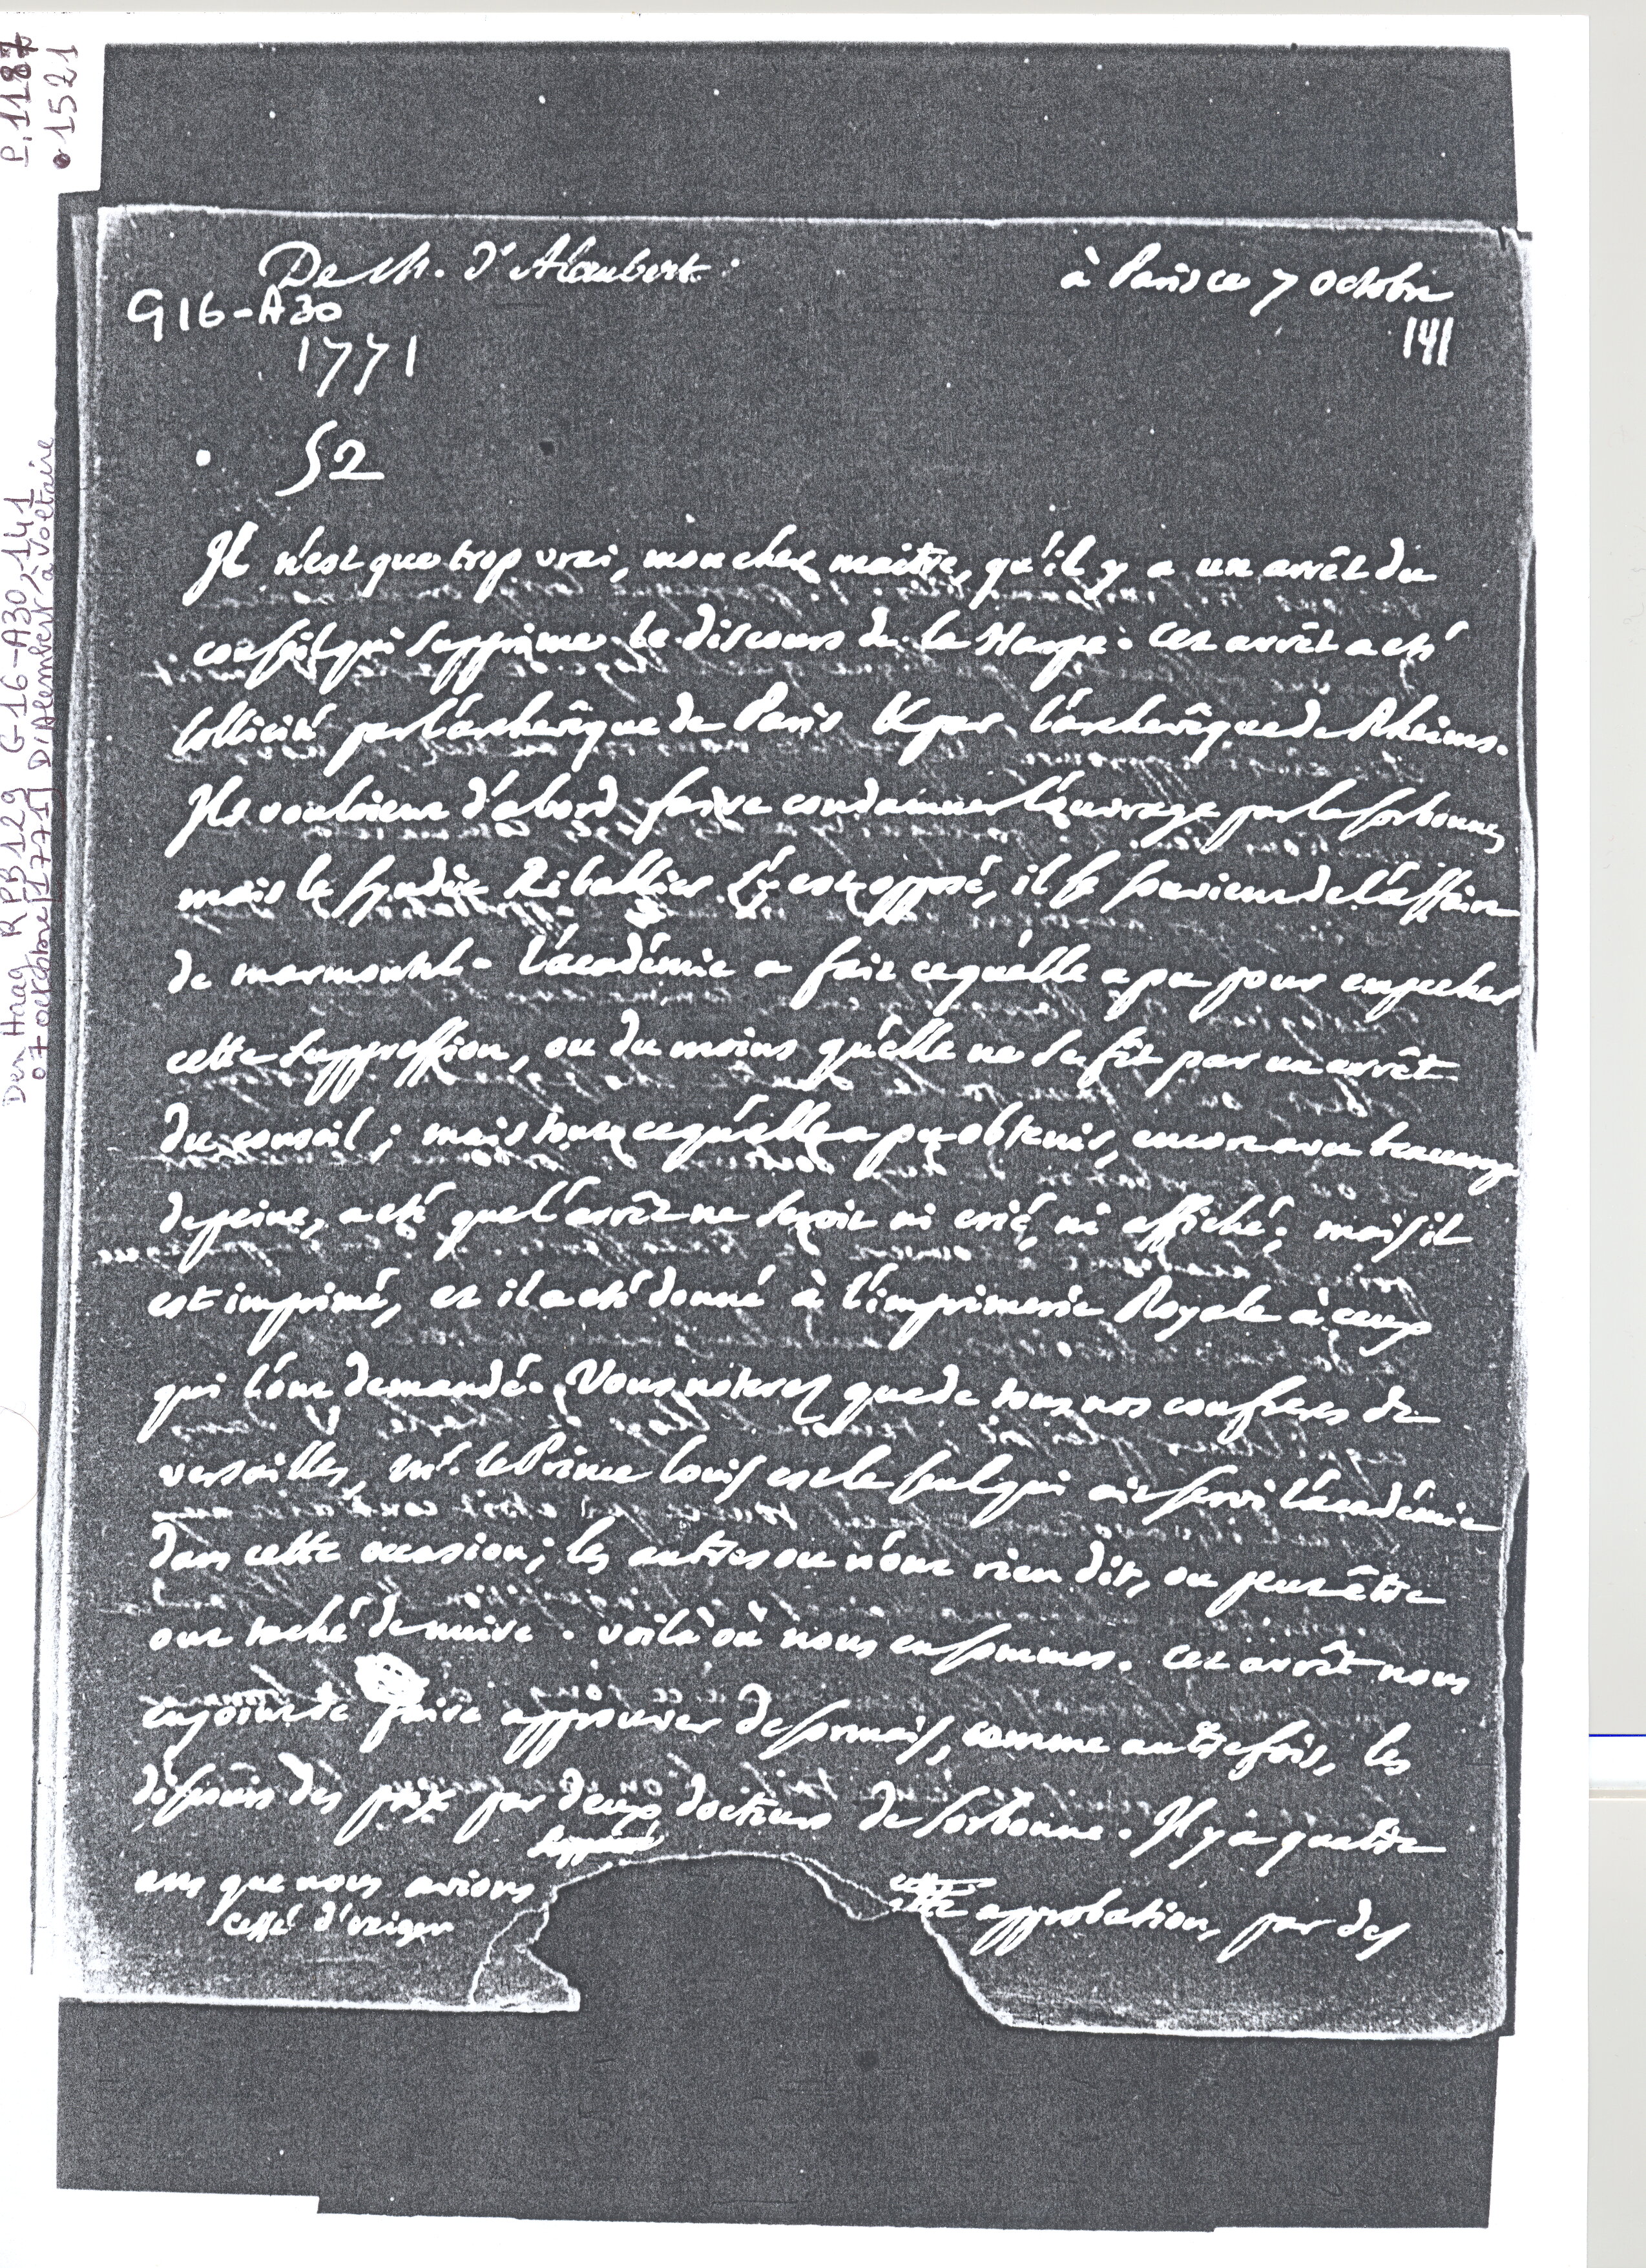 P. 1187
• 1521
Den Haag RPB 129 G 16-A30, 141
07 octobre [1771] D'Alembert à Voltaire
De M. d'Alembert.
à Paris ce 7 octobre
G16-A30
141
1771
52
Il n'est que trop vrai, mon cher maitre, qu'il y a un arrêt du
conseil qui supprime le discours de la Harpe. cet arrêt a eté
sollicité par l'archevêque de Paris & par l'archevêque de Rheims.
Ils vouloient d'abord faire condamner l'ouvrage par la sorbonne,
mais le syndic Riballier s'y est opposé, il se souvient de l'affaire
de marmontel. l'académie a fait ce qu'elle a pu pour empecher
cette suppression, ou du moins qu'elle ne se fît par un arrêt
du conseil; mais tout ce qu'elle a pu obtenir, encore avec beaucoup
de peine, a eté que l'arrêt ne seroit ni crié, ni affiché; mais il
est imprimé, et il a eté donné à l'imprimerie Royale à ceux
qui l'ont demandé. Vous noterez que de tous nos confreres de
versailles, mr. le Prince louis est le seul qui ait servi l'académie
dans cette occasion; les autres ou n'ont rien dit, ou peut être
ont taché de nuire. voilà où nous en sommes. cet arrêt nous
enjoint de faire approuver desormais, comme autrefois, les
discours des prix par deux docteurs de sorbonne. Il y a quatre
supprimé
ans que nous avions cette approbation, par des
cessé d'exiger